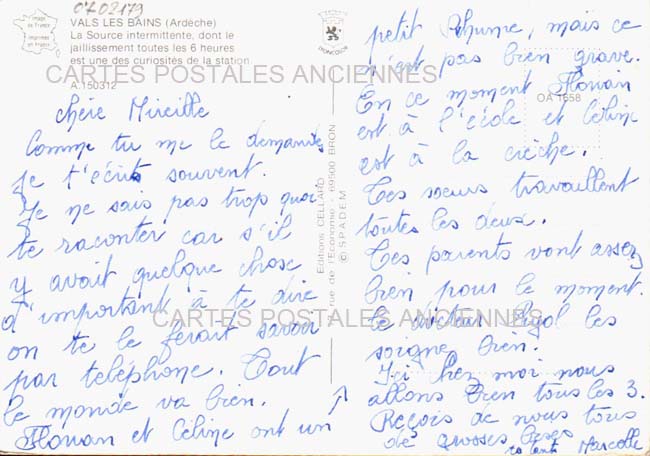 0702179
Image de France
Imprimée en France
VALS LES BAINS (Ardèche)
La Source intermittente, dont le
jaillissement toutes les 6 heures
est une des curiosités de la station.
A.150312
CARTES POSTALES ANCIENNES
chère Mireille
Comme tu me le demandes
je t'écris souvent.
Je ne sais pas trop quoi
te raconter car s'il
y avait quelque chose
d'important à te dire
on te le ferait savoir
par téléphone. Tout
le monde va bien.
Florian et Céline ont un
Editions CELLARD
rue de l'Economie - 69500 BRON
© SPADEM
petit Rhume, mais ce
n'est pas bien grave.
En ce moment Florian
OA 1658
est à l'école et Céline
est à la crèche.
Tes soeurs travaillent
toutes les deux.
Tes parents vont assez
bien pour le moment.
CARTES POSTALES ANCIENNES
le docteur les
soigne bien.
Ici chez moi nous
allons bien tous les 3.
Reçois de nous tous
de grosses bises
ta tante Marcelle